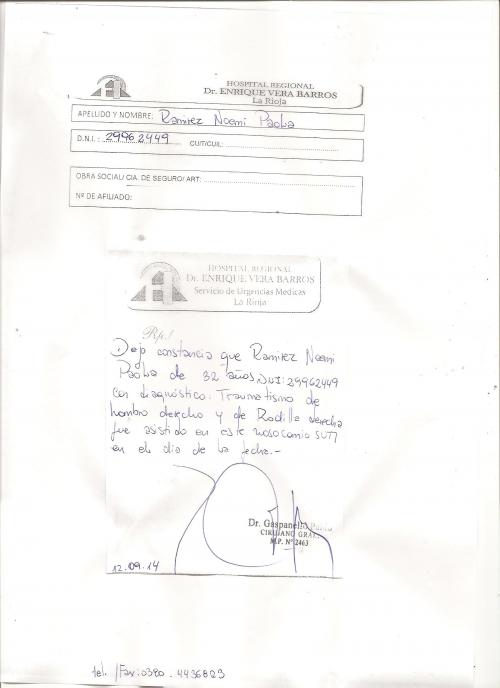 HOSPITAL REGIONAL
Dr. ENRIQUE VERA BARROS
La Rioja
APELLIDO Y NOMBRE: Ramirez Noemi Paola
D.N.I.: 29962449 CUIT/CUIL:
OBRA SOCIAL/ CIA. DE SEGURO/ ART:
Nº DE AFILIADO:
HOSPITAL REGIONAL
Dr. ENRIQUE VERA BARROS
Servicio de Urgencias Medicas
La Rioja
Rp./
Dejo constancia que Ramirez Noemi
Paola de 32 años, DNI: 29962449
con diagnóstico: Traumatismo de
hombro derecho y de Rodilla derecha
fue asistido en este nosocomio
en el día de la fecha.-
Dr. Gaspanello
CIRUJANO GRAL.
M.P. Nº 2463
12.09.14
tel. /Fax: 0380 - 4436829